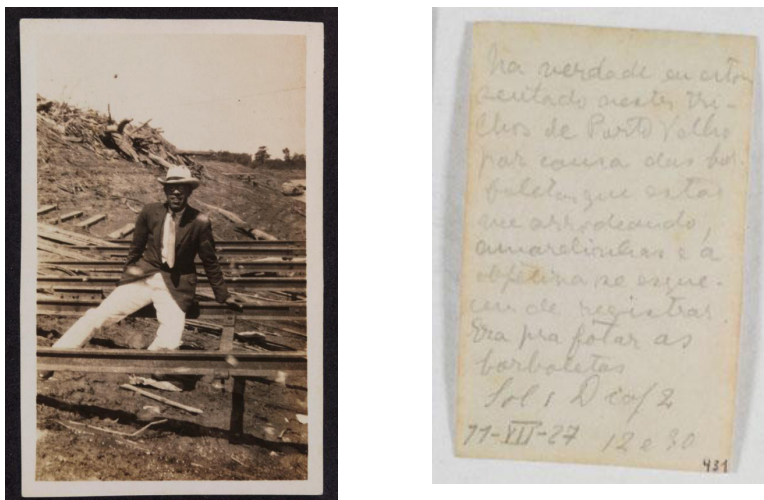 Na verdade eu estou
sentado nestes tri-
lhos de Porto Velho
por causa das bor-
boletas que estão
me arrodeando,
amarelinhas e a
objetiva se esque-
ceu de registrar.
Era pra fotar as
borboletas
Sol 1 D
12 e 30
431